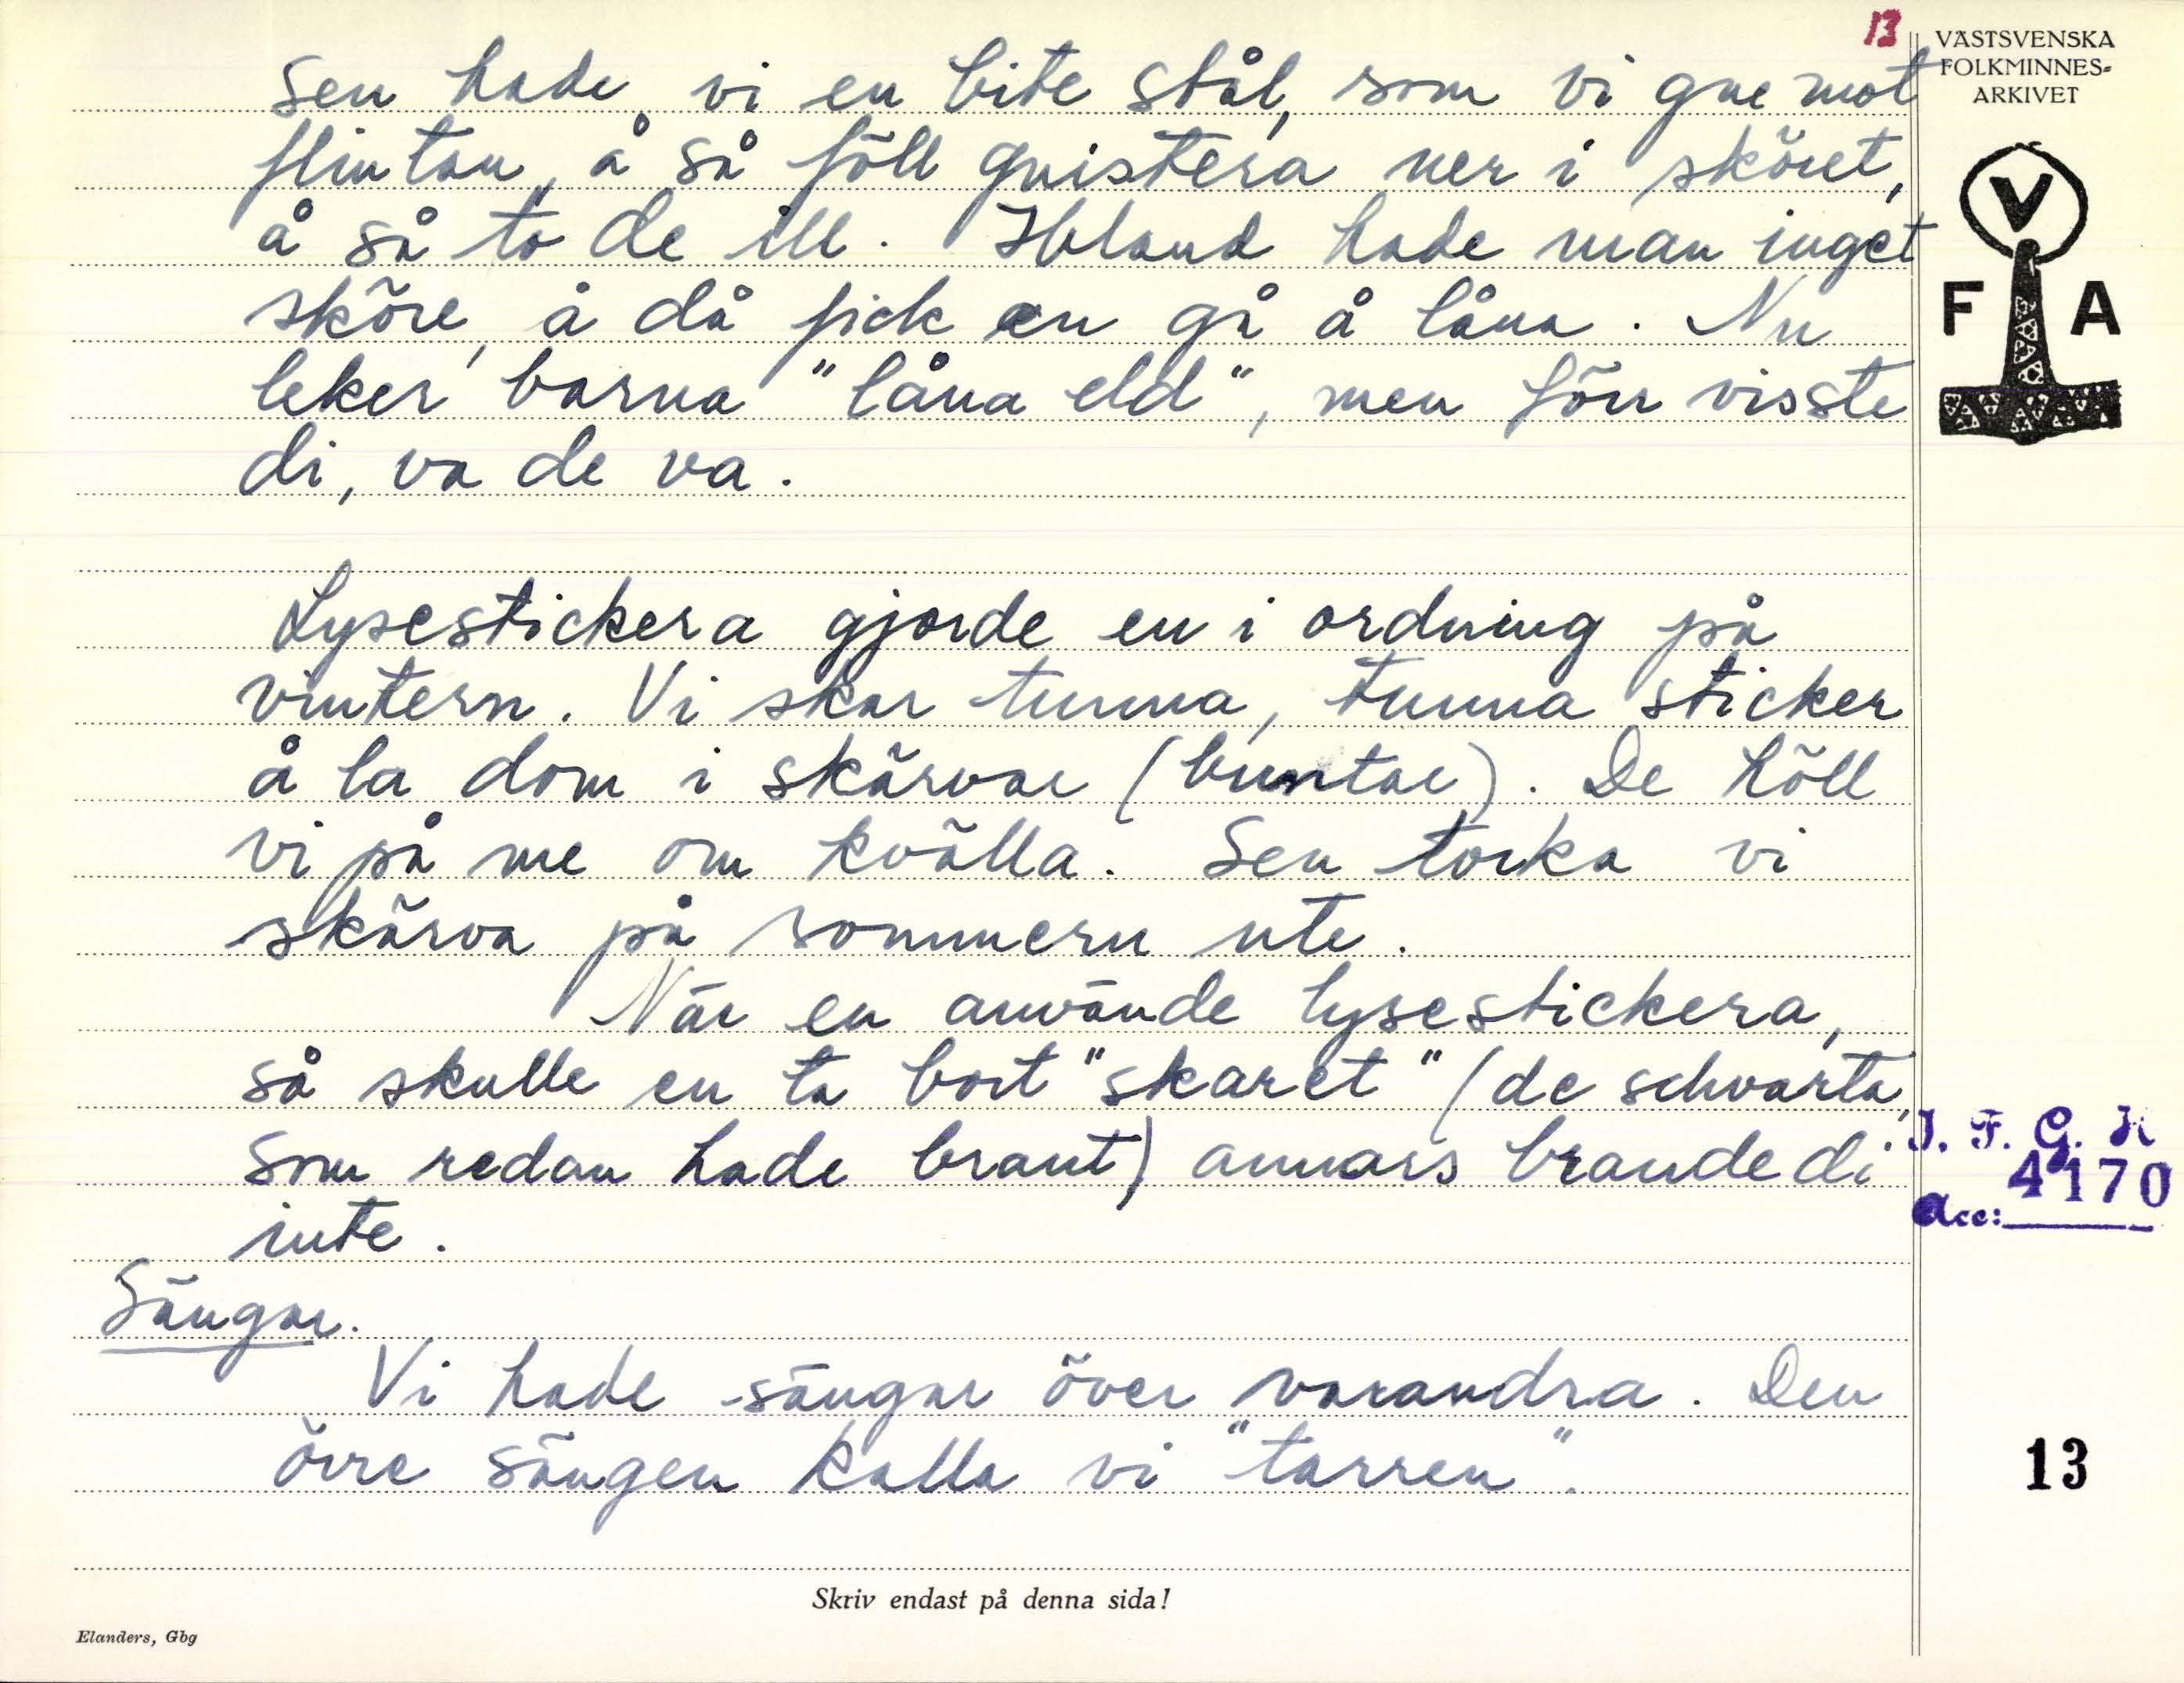 13
VÄSTSVENSKA
FOLKMINNES-
ARKIVET
V
F A
Sen hade vi en bite stål, som vi gne mot
flintan, å så föll gnistera ner i sköret,
å så to de ill. Ibland hade man inget
sköre, å då fick en gå å låna. Nu
leker barna "låna eld", men förr visste
di, va de va.
Lysestickera gjorde en i ordning på
vintern. Vi skar tunna, tunna sticker
å la dom i skärvar (buntar). De höll
vi på me om kvälla. Sen torka vi
skärva på sommern ute.
När en använde lysestickera,
så skulle en ta bort "skaret" (de schvarta,
som redan hade brant) annars brande di
inte.
I. F. G. H
4170
Acc:
Sängar.
Vi hade sängar över varandra. Den
örre sängen kalla vi "tarren".
13
Skriv endast på denna sida!
Elanders, Gbg